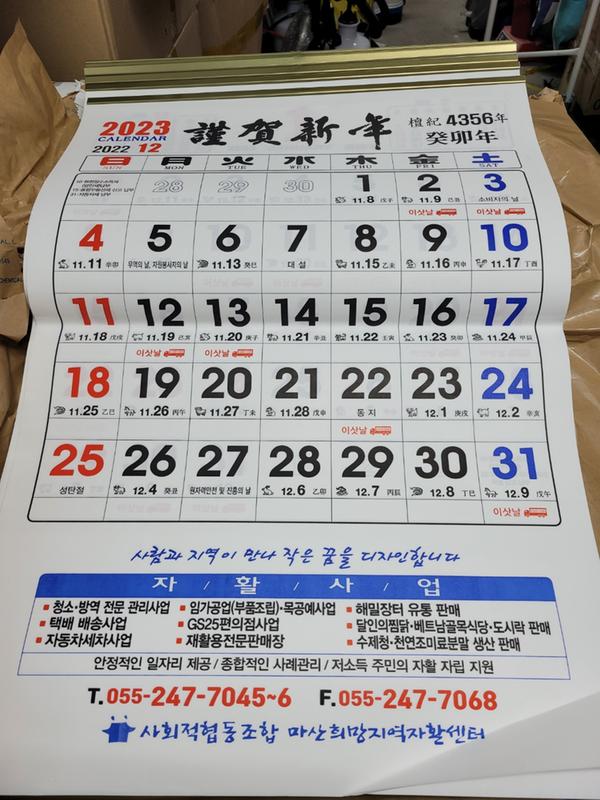 2023
CALENDAR
謹賀新年
檀紀 4356年
癸卯年
2022 12
日 月 火 水 木 金 土
SUN MON TUE WED THU FRI SAT
28 29 30 1 2 3
11.8 戊子 11.9 己丑 소비자의 날
이삿날 이삿날
4 5 6 7 8 9 10
11.11 辛卯 무역의 날, 자원봉사자의 날 11.13 癸巳 대설 11.15 乙未 11.16 丙申 11.17 丁酉
11 12 13 14 15 16 17
11.18 戊戌 11.19 己亥 11.20 庚子 11.21 辛丑 11.22 壬寅 11.23 癸卯 11.24 甲辰
이삿날 이삿날
18 19 20 21 22 23 24
11.25 乙巳 11.26 丙午 11.27 丁未 11.28 戊申 동지 12.1 庚戌 12.2 辛亥
이삿날
25 26 27 28 29 30 31
성탄절 12.4 癸丑 원자력안전 및 진흥의 날 12.6 乙卯 12.7 丙辰 12.8 丁巳 12.9 戊午
이삿날
사람과 지역이 만나 작은 꿈을 디자인합니다
자 / 활 / 사 / 업
청소·방역 전문 관리사업 임가공업(부품조립)·목공예사업 해밀장터 유통 판매
택배 배송사업 GS25편의점사업 달인의찜닭·베트남골목식당·도시락 판매
자동차세차사업 재활용전문판매장 수제청·천연조미료분말 생산 판매
안정적인 일자리 제공 / 종합적인 사례관리 / 저소득 주민의 자활 자립 지원
T.055-247-7045~6 F.055-247-7068
사회적협동조합 마산희망지역자활센터